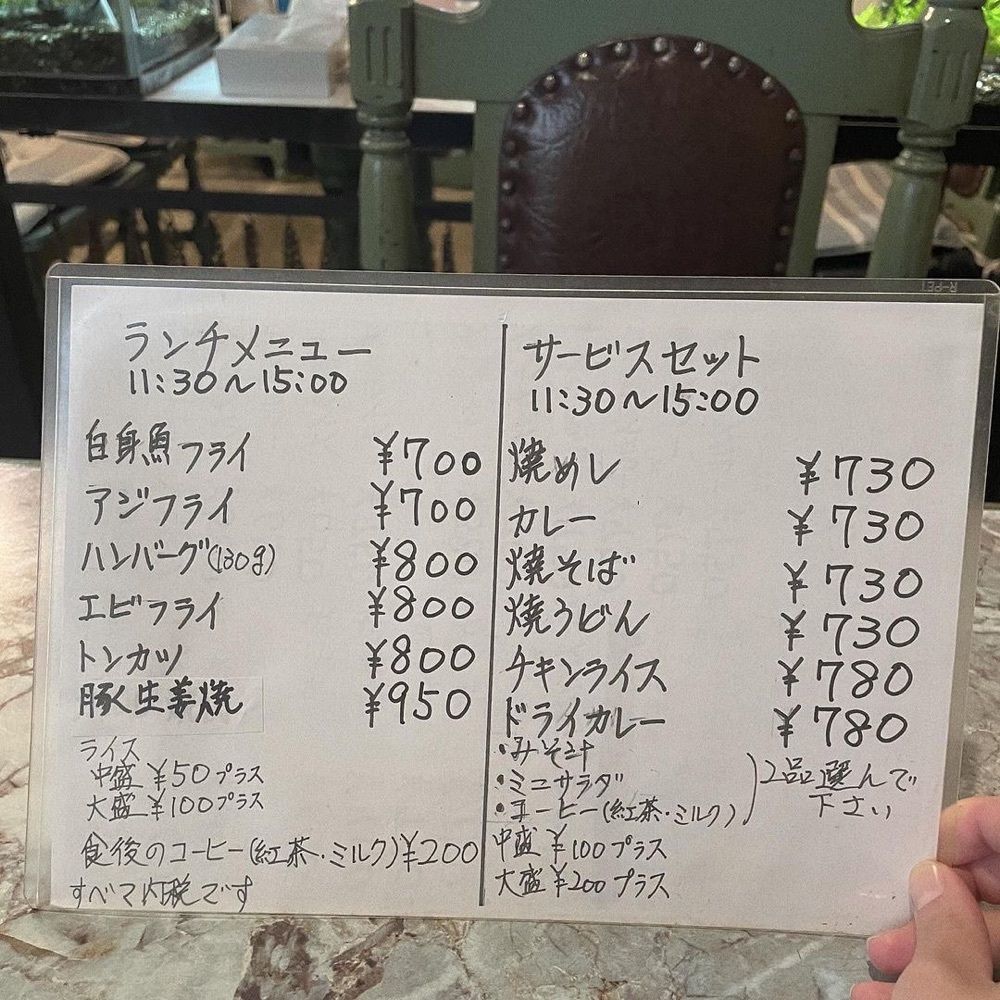 ランチメニュー
11:30～15:00
白身魚フライ ¥700
アジフライ ¥700
ハンバーグ(130g) ¥800
エビフライ ¥800
トンカツ ¥800
豚生姜焼 ¥950
ライス
中盛 ¥50プラス
大盛 ¥100プラス
食後のコーヒー(紅茶・ミルク)¥200
すべて内税です
サービスセット
11:30～15:00
焼めし ¥730
カレー ¥730
焼そば ¥730
焼うどん ¥730
チキンライス ¥780
ドライカレー ¥780
・みそ汁
・ミニサラダ
・コーヒー(紅茶・ミルク)
2品選んで
下さい
中盛 ¥100プラス
大盛 ¥200プラス
R-PET